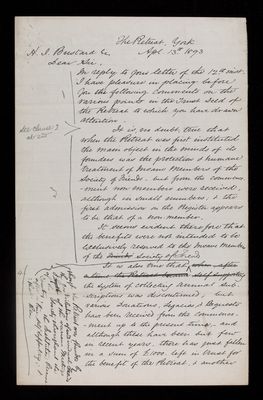 The Retreat, York
Apl. 13th 1893
H. I. Burtard
Dear Sir,
In reply to your letter of the 12th inst.
I have pleasure in placing before
you the following comments on the
various points in the Trust Deed of
the Retreat to which you have drawn
attention.
It is, no doubt, true that
when the Retreat was first instituted
the main object in the minds of its
founders was the protection & humane
treatment of Insane Members of the
Society of Friends, but from the commence-
-ment non-members were received,
although in small numbers, & the
first admission in the Register appears
to be that of a non-member.
It seems evident therefore that
the benefits were not intended to be
exclusively reserved to the Insane Members
of the Society of Friends
It is also true that, when after
the Retreat became self supporting
the system of collecting annual sub-
scriptions was discontinued, but
various Donations, Legacies & Bequests
have been received from the commence-
-ment up to the present time, and
although these have been but few
in recent years, there has just fallen
in a sum of £1,000 left in Trust for
the benefit of the Retreat, & another
see clause 7